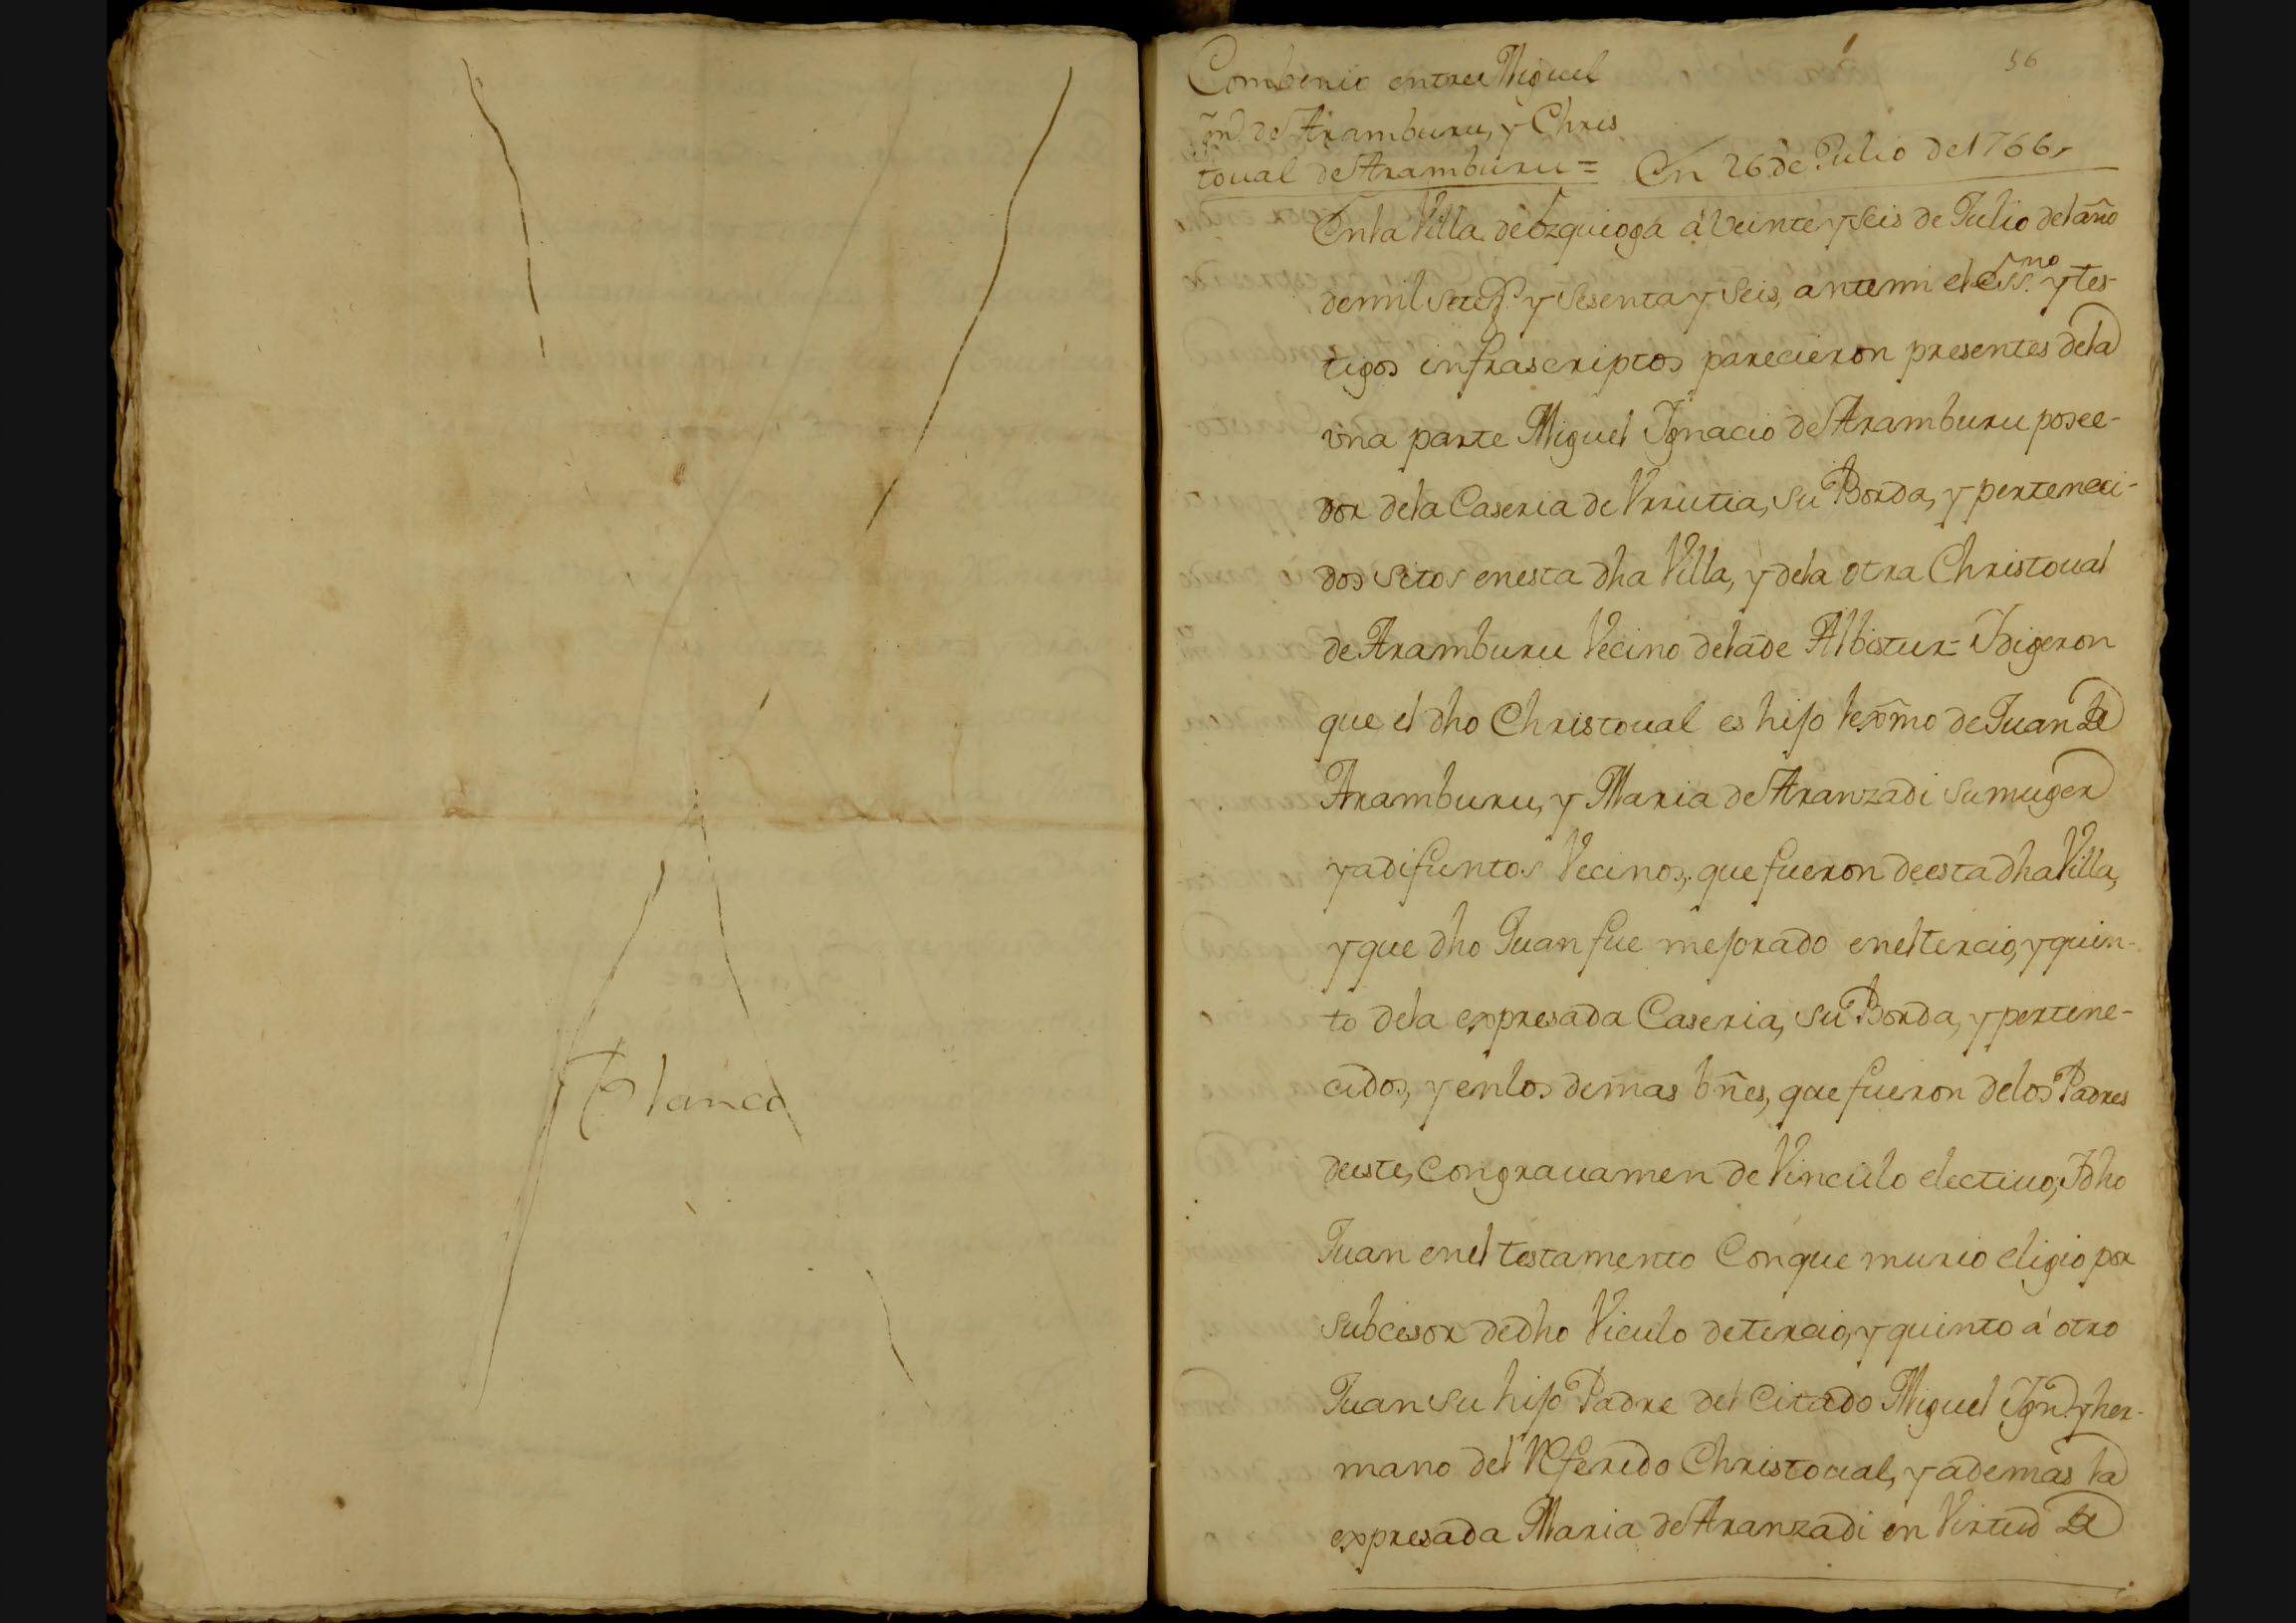 Blanco
56
Combenio entre Miguel
Ign.º de Aramburu, y Chris
toual de Aramburu = En 26 de Julio de 1766,,
En la Villa de Ezquioga á Veinte y seis de Julio del año
de mil setez.s y sesenta y seis, ante mi el ess.mo y tes-
tigos infrascriptos parecieron presentes dela
vna parte Miguel Ignacio de Aramburu posee-
dor dela Caseria de Vrrutia, su Borda, y perteneci-
dos sitos en esta dha Villa, y dela otra Christoual
de Aramburu Vecino dela de Albistur = I digeron
que el dho Christoual es hijo lexmo de Juan de
Aramburu, y Maria de Aranzadi su muger
ya difuntos Vecinos, que fueron de esta dha Villa,
y que dho Juan fue mejorado en el tercio, y quin-
to dela expresada Caseria, su Borda, y pertene-
cidos, y en los demas bñes, que fueron delos Padres
de este, con grauamen de Vinculo electiuo, I dho
Juan en el testamento con que murio eligio por
subcesor de dho Viculo de tercio, y quinto á otro
Juan su hijo Padre del citado Miguel Ign.º y her-
mano del Referido Christoual, y ademas la
expresada Maria de Aranzadi en Virtud de